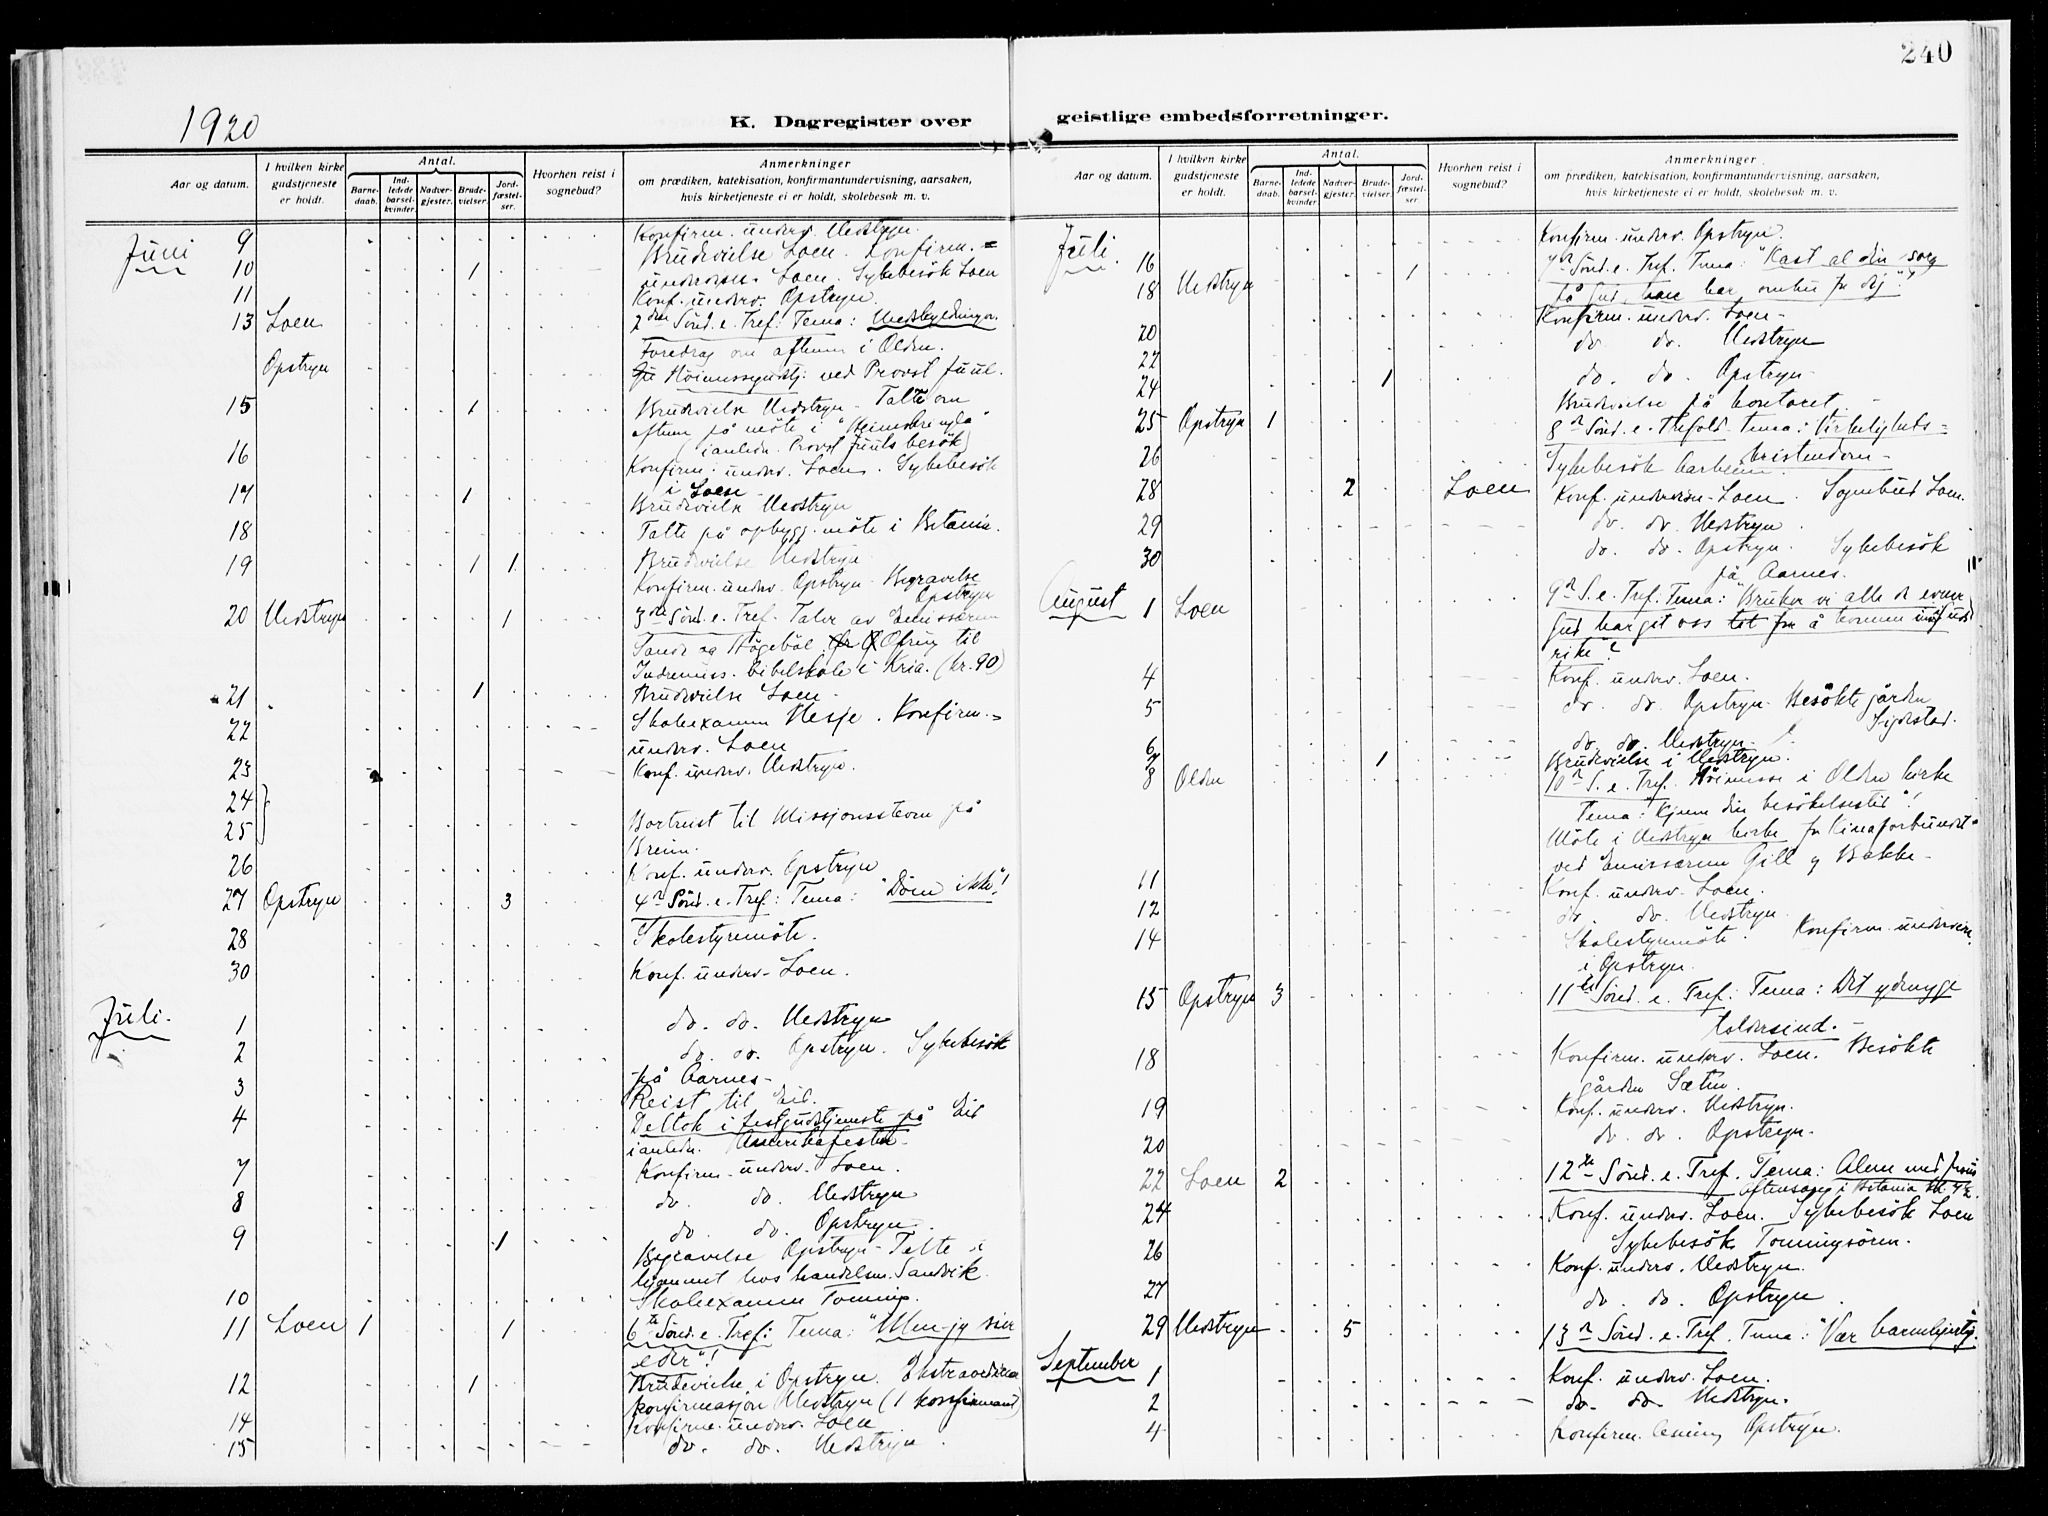 240
1920
K. Dagregister over geistlige embedsforretninger.
Aar og datum.
I hvilken kirke gudstjeneste er holdt.
Antal.
Barne-daab.
Ind-ledede barsel-kvinder.
Nadver-gjester.
Brude-vielser.
Jord-fæstel-ser.
Hvorhen reist i sognebud?
Anmerkninger
om prædiken, katekisation, konfirmantundervisning, aarsaken,
hvis kirketjeneste ei er holdt, skolebesøk m. v.
Juni 9 Konfirm. underv. Nedstryn.
10 1 Brudevielse Loen. Konfirm.=
underv. Loen. Sykebesök Loen
11 Konf. underv. Opstryn.
13 Loen 2den Sönd. e. Tref: Tema:
Foredrag om aftenen i Olden.
Opstryn Høimessegudstj: ved Provst Juul.
15 1 Brudevielse Nedstryn - Talte om
aftenen på möte i "Heimskringla"
(i anledn. Provst Juuls besök)
16 Konfirm. underv. Loen. Sykebesök
i Loen
17 1 Brudevielse Nedstryn
18 Talte på opbygg. möte i Betania.
19 1 1 Brudevielse Nedstryn
Konfirm. underv. Opstryn - Begravelse
Opstryn
20 Nedstryn 1 3die Sönd. e. Tref. Taler av Emissærene
og Offring til
Indremiss. bibelskole i Kria. (kr. 90)
21 1 Brudevielse Loen -
22 Skoleexamen Hesje. Konfirm.=
underv. Loen
23 Konf. underv. Nedstryn.
24
25 Bortreist til Missjonsstevne på
Breim.
26 Konf. underv. Opstryn
27 Opstryn 3 4de Sönd. e. Tref: Tema: "Döm ikke"!
28 Skolestyremöte.
30 Konf. underv. Loen.
Juli.
1 do. do. Nedstryn
2 do. do. Opstryn. Sykebesök
på Aarnes-
3 Reist til Eid.
4 Deltok i festgudstjeneste på Eid
i anledn. Amerikafesten -
7 Konfirm. underv. Loen.
8 do do. Nedstryn
9 1 do do. Opstryn.
Begravelse Opstryn - Talte i
hjemmet hos handelsm. Sandvik.
10 Skoleexamen Tonning.
11 Loen 1 1 6te Sönd. e. Tref: Tema: "Men jeg sier
eder"!
12 1 Brudevielse i Opstryn. Ekstraordinær
konfirmasjon Nedstryn (1 konfirmant)
14 Konfirm. underv. Loen
15 do. do. Nedstryn.
Aar og datum.
I hvilken kirke gudstjeneste er holdt.
Antal.
Barne-daab.
Ind-ledede barsel-kvinder.
Nadver-gjester.
Brude-vielser.
Jord-fæstel-ser.
Hvorhen reist i sognebud?
Anmerkninger
om prædiken, katekisation, konfirmantundervisning, aarsaken,
hvis kirketjeneste ei er holdt, skolebesøk m. v.
Juli. 16 Konfirm. underv. Opstryn.
18 Nedstryn 1 7de Sönd. e. Tref. Tema: "Kast al din sorg
på Gud, han har omhu for dig"!
20 Konfirm. underv. Loen -
22 do. do. Nedstryn
24 1 do. do. Opstryn
Brudevielse på kontoret.
25 Opstryn 1 8de Sönd. e. Trefold. Tema: Virkeligheds=
kristendom -
26 Sykebesök
28 2 Loen Konf. underv. - Loen. Sognebud Loen.
29 do. do. Nedstryn.
30 do. do. Opstryn. Sykebesök
på Aarnes.
August 1 Loen 9de S. e. Tref. Tema: "Bruker vi alle de evner
Gud har git oss til å komme ind i Guds
rike"?
4 Konf. underv. Loen.
5 do. do. Opstryn. Besökte gården
6 do. do. Nedstryn -
7 1 Brudevielse i Nedstryn.
8 Olden 10de S. e. Tref. Höimesse i Olden kirke
Tema: "Kjenn din besökelsestid"!
Möte i Nedstryn kirke for Kinaforbundet
ved Emissærene Gill og Bakke -
11 Konf. underv. Loen.
12 do. do. Nedstryn.
14 Skolestyremöte. Konfirm. underv.
i Opstryn.
15 Opstryn 3 11te Sönd. e. Tref: Tema: Det ydmyge
toldersind. -
18 Konfirm. underv. Loen. Besökte
gården Sæten.
19 Konf. underv. Nedstryn.
20 do. do. Opstryn.
22 Loen 2 12te Sönd. e. Tref. Tema: Alene med Jesus
Aftensang i Betania kl. 4½.
24 Konf. underv. Loen. Sykebesök Loen
26 Sykebesök Tonningsören.
Konf. underv. Nedstryn.
27 do. do. Opstryn.
29 Nedstryn 5 13de Sönd. e. Tref. Tema: "Vær barmhjertig.
September 1 Konf. underv. Loen.
2 do. do. Nedstryn.
4 Konfirm. Opstryn.